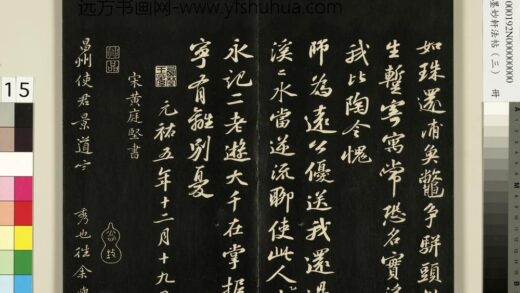 远方书画网-www.yfshuhua.com
如珠還浦魚鼈争駢頭
生暫寄寓常恐名實浮
我比陶令愧
師為遠公優送我還過
溪〻水當逆流聊使此人
永記二老遊大千在掌握
寧有離別憂
元祐五年十二月十九日
宋黄庭堅書
昌州使君景道宗
秀也往余與
000192N000000000
墨妙軒法帖（三） 冊
15